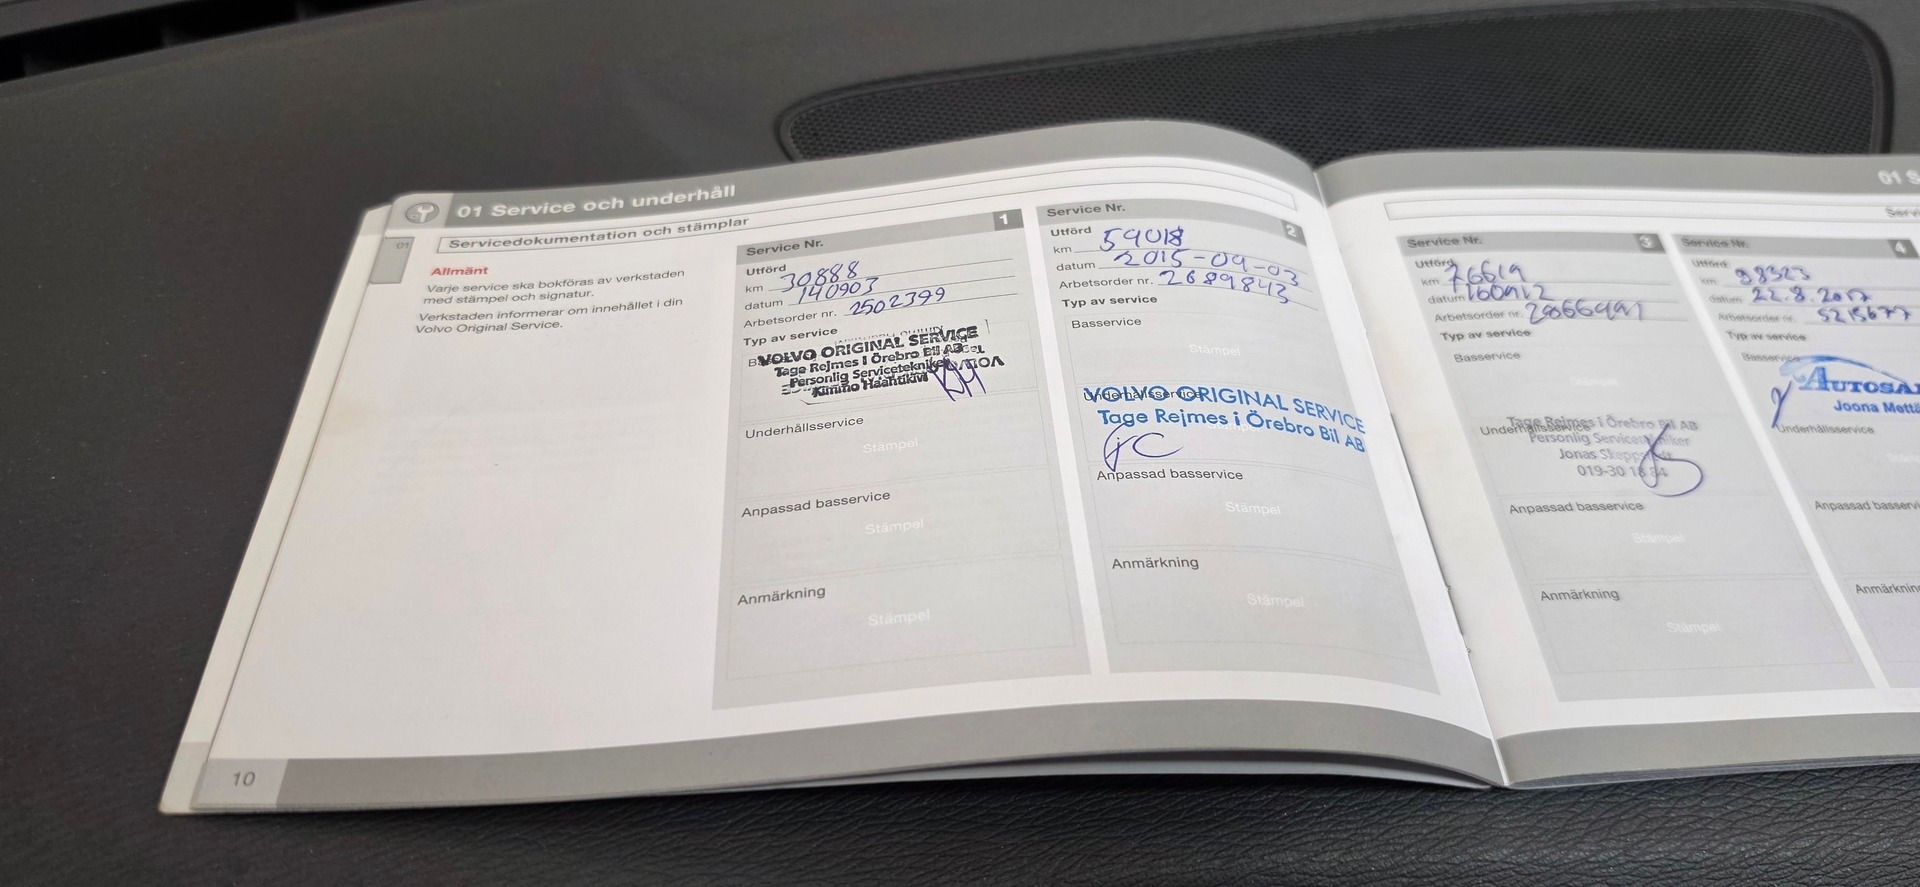 01 Service och underhåll
Servicedokumentation och stämplar
01
Allmänt
Varje service ska bokföras av verkstaden
med stämpel och signatur.
Verkstaden informerar om innehållet i din
Volvo Original Service.
Service Nr. 1
Utförd
km 30888
datum 140903
Arbetsorder nr. 2502399
Typ av service
VOLVO ORIGINAL SERVICE
Tage Rejmes i Örebro Bil AB
Personlig Servicetekniker
Kimmo Haahtikivi
Underhållsservice
Stämpel
Anpassad basservice
Stämpel
Anmärkning
Stämpel
10
Service Nr. 2
Utförd
km 59018
datum 2015-09-03
Arbetsorder nr. 2689843
Typ av service
Basservice
Stämpel
Underhållsservice
VOLVO ORIGINAL SERVICE
Tage Rejmes i Örebro Bil AB
Anpassad basservice
Stämpel
Anmärkning
Stämpel
01 S
Servi
Service Nr. 3
Utförd
km 76619
datum 160912
Arbetsorder nr. 28666991
Typ av service
Basservice
Stämpel
Underhållsservice
Tage Rejmes i Örebro Bil AB
Personlig Servicetekniker
Jonas
019-30 18 84
Anpassad basservice
Stämpel
Anmärkning
Stämpel
Service Nr. 4
Utförd
km 98323
datum 22.8.2017
Arbetsorder nr. 5215677
Typ av service
Basservice
AUTOSA
Joona Mettä
Underhållsservice
Anpassad basservi
Anmärkning